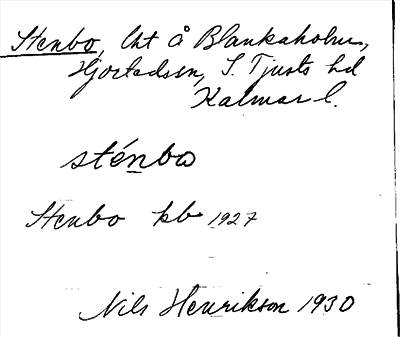 Stenbo, lht å Blankaholm,
Hjortedsen, S. Tjusts hd
Kalmar l.
sténbo
Stenbo kb 1927
Nils Henrikson 1930